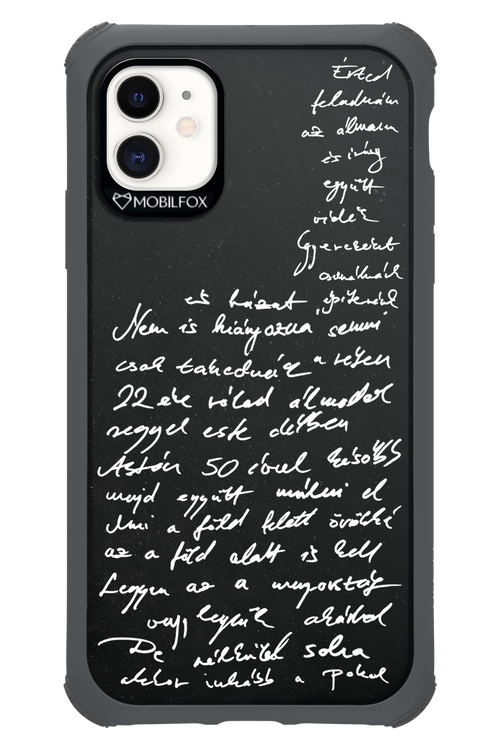 MOBILFOX
Érted
feladnám
az álmaim
és irány
együtt
vidék
Gyereket
csinálnék
és házat építenék
Nem is hiányozna semmi
csak takednék a
22 éve rólad álmodok
reggel este délben
Aztán 50 évvel később
majd együtt múlni el
Ami a föld felett örökké
az a föld alatt is kell
Legyen az a mennyország
vagy legyünk akárhol
De nélküled soha
akkor inkább a pokol